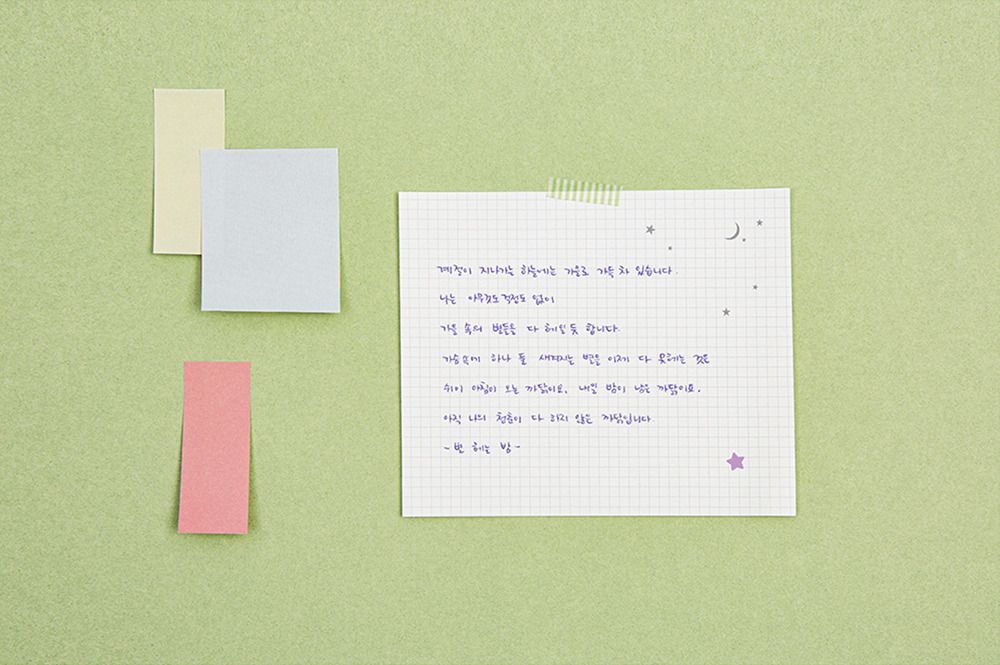 계절이 지나가는 하늘에는 가을로 가득 차 있습니다.
나는 아무것도 걱정도 없이
가을 속의 별들을 다 헤일듯 합니다.
가슴속에 하나 둘 새겨지는 별을 이제 다 못헤는 것은
쉬이 아침이 오는 까닭이요, 내일 밤이 남은 까닭이요,
아직 나의 청춘이 다 하지 않은 까닭입니다.
- 별 헤는 밤 -